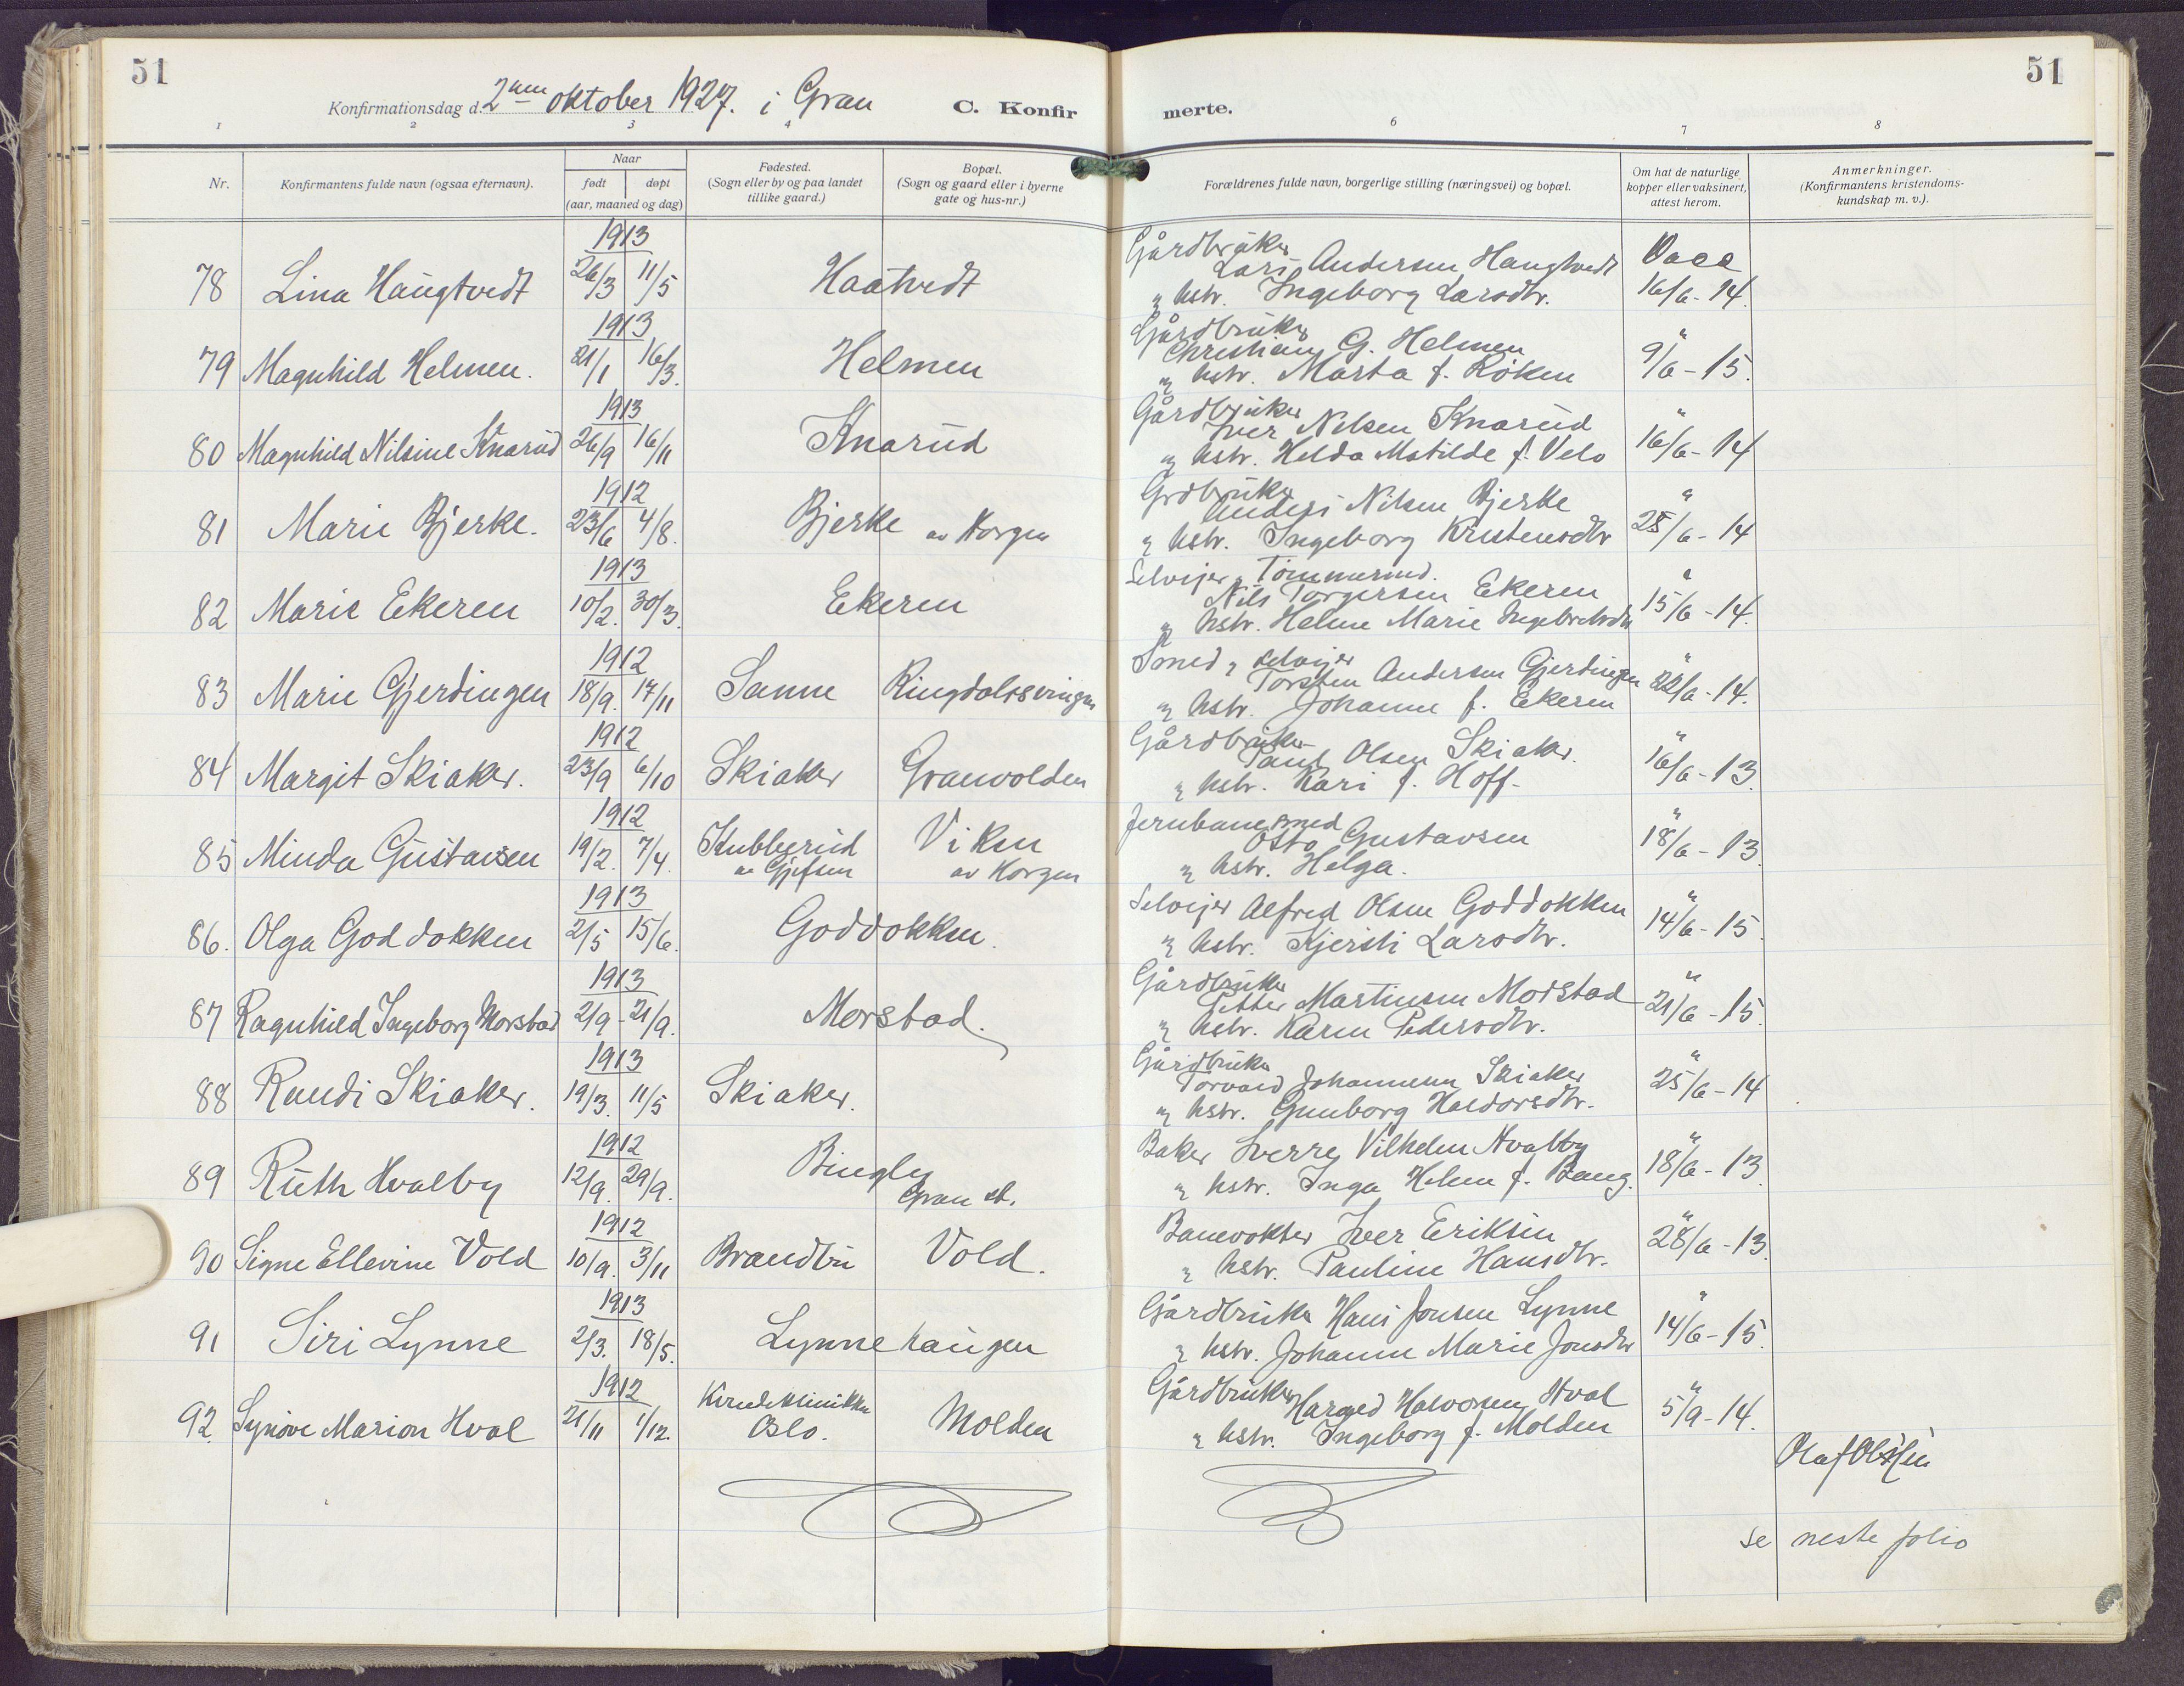 51
51
Konfirmationsdag d. 2nen oktober 1927. i Gran
C. Konfir
merte.
1 2 3 4 6 7 8
Nr.
Konfirmantens fulde navn (ogsaa efternavn).
Naar
født
døpt
(aar, maaned og dag)
Fødested.
(Sogn eller by og paa landet
tillike gaard.)
Bopæl.
(Sogn og gaard eller i byerne
gate og hus-nr.)
Forældrenes fulde navn, borgerlige stilling (næringsvei) og bopæl.
Om hat de naturlige
kopper eller vaksinert,
attest herom.
Anmerkninger.
(Konfirmantens kristendoms-
kundskap m. v.).
1913
Gårdbruker
78 Lina Haugtvedt 26/3 11/5 Haatvedt Lars Andersen Haugtvedt Vacc
" hstr. Ingeborg Larsdtr. 16/6-14.
1913
Gårdbruker
79 Magnhild Helmen. 21/1 16/3. Helmen Christian G. Helmen "
" hstr. Marta f. Røken 9/6-15.
1913
Gårdbruker
80 Magnhild Nilsine Knarud 26/9 16/11 Knarud Iver Nelsen Knarud "
" hstr. Helda Matilde f. Velo 16/6-14
1912
Grdbruker
81 Marie Bjerke. 23/6 4/8. Bjerke av Horgen Anders Nilsen Bjerke "
" hstr. Ingeborg Kristensdtr 25/6-14
1913
Selveier, Tømmermd.
82 Marie Ekeren 10/2. 30/3. Ekeren Nils Torgersen Ekeren "
" hstr. Helene Marie 15/6-14.
1912
Smed, selveier
83 Marie Gjerdingen 18/9. 17/11 Sanne Ringdalssvingen Torsten Andersen Gjerdingen "
" hstr. Johanne f. Ekeren 22/6-14.
1912
Gårdbruker
84 Margit Skiaker. 23/9 6/10 Skiaker Granvolden Paul Olsen Skiaker. "
" hstr. Kari f. Hoff. 16/6-13.
1912
Jernbanesmed
85 Minda Gustavsen 19/2. 7/4. Kubberud Viken Otto Gustavsen "
av Gjefsen av Horgen " hstr. Helga. 18/6-13.
1913
86. Olga Goddokken 2/5 15/6. Goddokken. Selveier Alfred Olsen Goddokken "
" hstr. Kjersti Larsdtr. 14/6-15.
1913
Gårdbruker
87 Ragnhild Ingeborg Morstad 2/9-21/9. Morstad. Petter Martinsen Morstad "
" hstr. Karen Pedersdtr. 21/6-15.
1913
Gårdbruker
88 Randi Skiaker. 19/3. 11/5 Skiaker. Torvald Johannesen Skiaker "
" hstr. Gunborg Haldorsdtr. 25/6-14
1912
89 Ruth Hvalby 12/9. 29/9. Bingley Baker Sverre Vilhelm Hvalby "
Gran st. " hstr. Inga Helene f. Bang. 18/6-13.
1912
90 Signe Ellevine Vold 10/9. 3/11 Brandbu Vold. Banevokter Iver Eriksen "
" hstr. Pauline Hansdtr. 28/6-13.
1913
91 Siri Lynne 2/3. 18/5. Lynnehaugen Gårdbruker Hans Jonsen Lynne "
" hstr. Johanne Marie Jonsdtr 14/6-15.
1912
92. Synøve Marion Hval 21/11 1/12. Kvindeklinikken Molden Gårdbruker Harald Halvorsen Hval "
Oslo. " hstr. Ingeborg f. Molden 5/9-14.
se neste folio